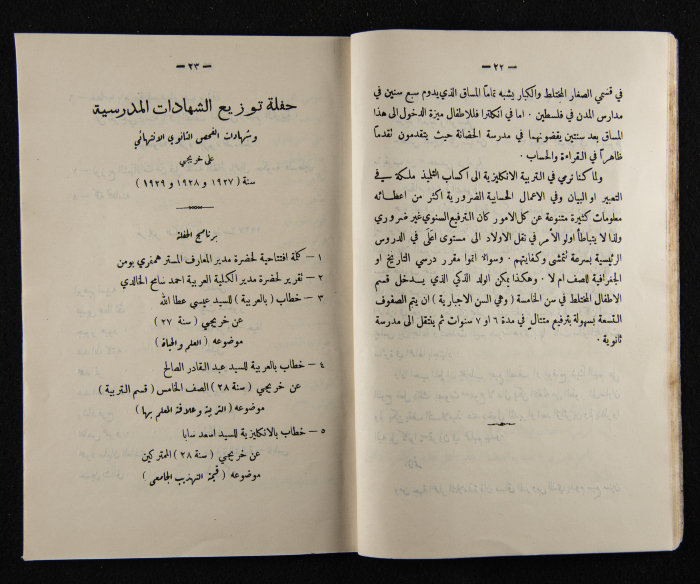 — ٢٢ —
في قسمي الصغار المختلط والكبار يشبه تماماً المساق الذي يدوم سبع سنين في
مدارس المدن في فلسطين . اما في انكلترا فللاطفال ميزة الدخول الى هذا
المساق بعد سنتين يقضونهما في مدرسة الحضانة حيث يتقدمون تقدماً
ظاهراً في القراءة والحساب .
ولما كنا نرمي في التربية الانكليزية الى اكساب التلميذ ملكة في
التعبير او البيان وفي الاعمال الحسابية الضرورية اكثر من اعطائه
معلومات كثيرة متنوعة عن كل الامور كان الترفيع السنوي غير ضروري
ولذا لا يتباطأ اولو الأمر في نقل الاولاد الى مستوى اعلى في الدروس
الرئيسية بسرعة تتمشى وكفايتهم . وسواء اتموا مقرر درسي التاريخ او
الجغرافية للصف ام لا . وهكذا يمكن الولد الذكي الذي يدخل قسم
الاطفال المختلط في سن الخامسة ( وهي السن الاجبارية ) ان يتم الصفوف
التسعة بسهولة بترفيع متتال في مدة ٦ او ٧ سنوات ثم ينتقل الى مدرسة
ثانوية .
— ٢٣ —
حفلة توزيع الشهادات المدرسية
وشهادات الفحص الثانوي الانتهائي
على خريجي
سنة ( ١٩٢٧ و ١٩٢٨ و ١٩٢٩ )
برنامج الحفلة
١ – كلمة افتتاحية لحضرة مدير المعارف المستر همفري بومن
٢ – تقرير لحضرة مدير الكلية العربية احمد سامح الخالدي
٣ – خطاب ( بالعربية ) للسيد عيسى عطا الله
عن خريجي ( سنة ٢٧ )
موضوعه ( العلم والحياة )
٤ – خطاب بالعربية للسيد عبد القادر الصالح
عن خريجي ( سنة ٢٨ ) الصف الخامس ( قسم التربية )
موضوعه ( التربية وعلاقة المعلم بها )
٥ – خطاب بالانكليزية للسيد اسعد سابا
عن خريجي ( سنة ٢٨ ) المتركين
موضوعه ( قيمة التهذيب الجامعي )